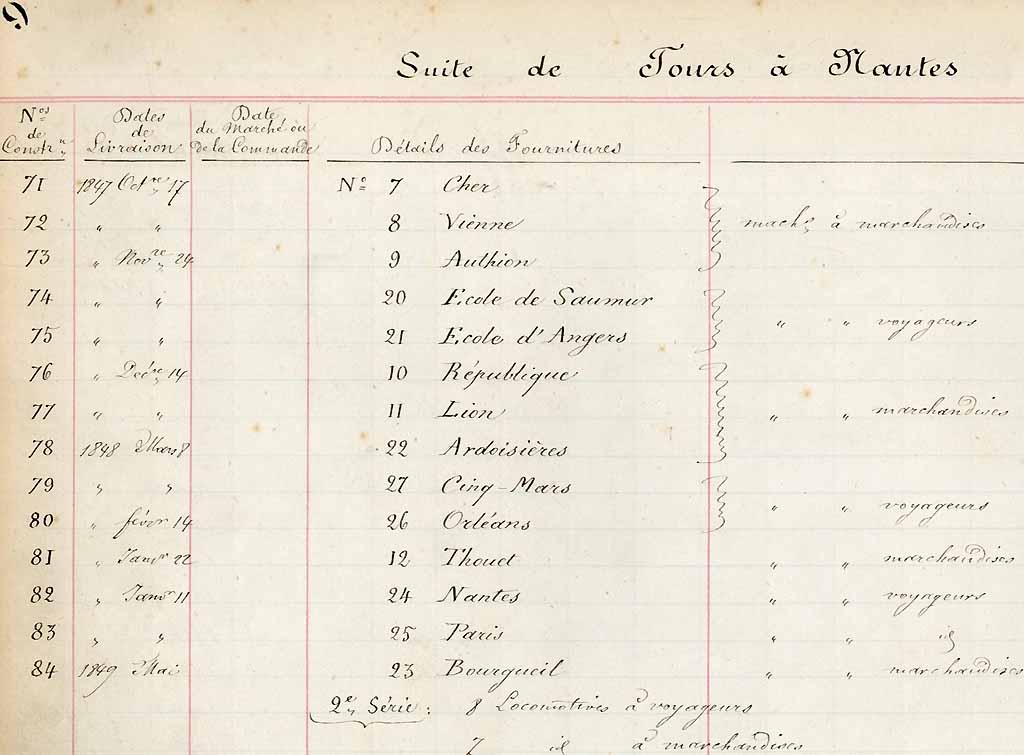 9
Suite de Tours à Nantes
Nos de Constrn Dates de Livraison Date du Marché ou de la Commande Détails des Fournitures
71 1847 Octre 17 No 7 Cher
72 " " 8 Vienne machs à marchandises
73 " Novre 24 9 Authion
74 " " 20 Ecole de Saumur
" " voyageurs
75 " " 21 Ecole d'Angers
76 " Décre 14 10 République
77 " " 11 Lion " " marchandises
78 1848 Mars 8 22 Ardoisières
79 " " 27 Cinq-Mars
" " voyageurs
80 " févr 14 26 Orléans
81 " Janvr 22 12 Thouet " " marchandises
82 " Janvr 11 24 Nantes " " voyageurs
83 " " 25 Paris " " id
84 1849 Mai 23 Bourgueil " " marchandises
2e Série : 8 Locomotives à voyageurs
7 id à marchandises